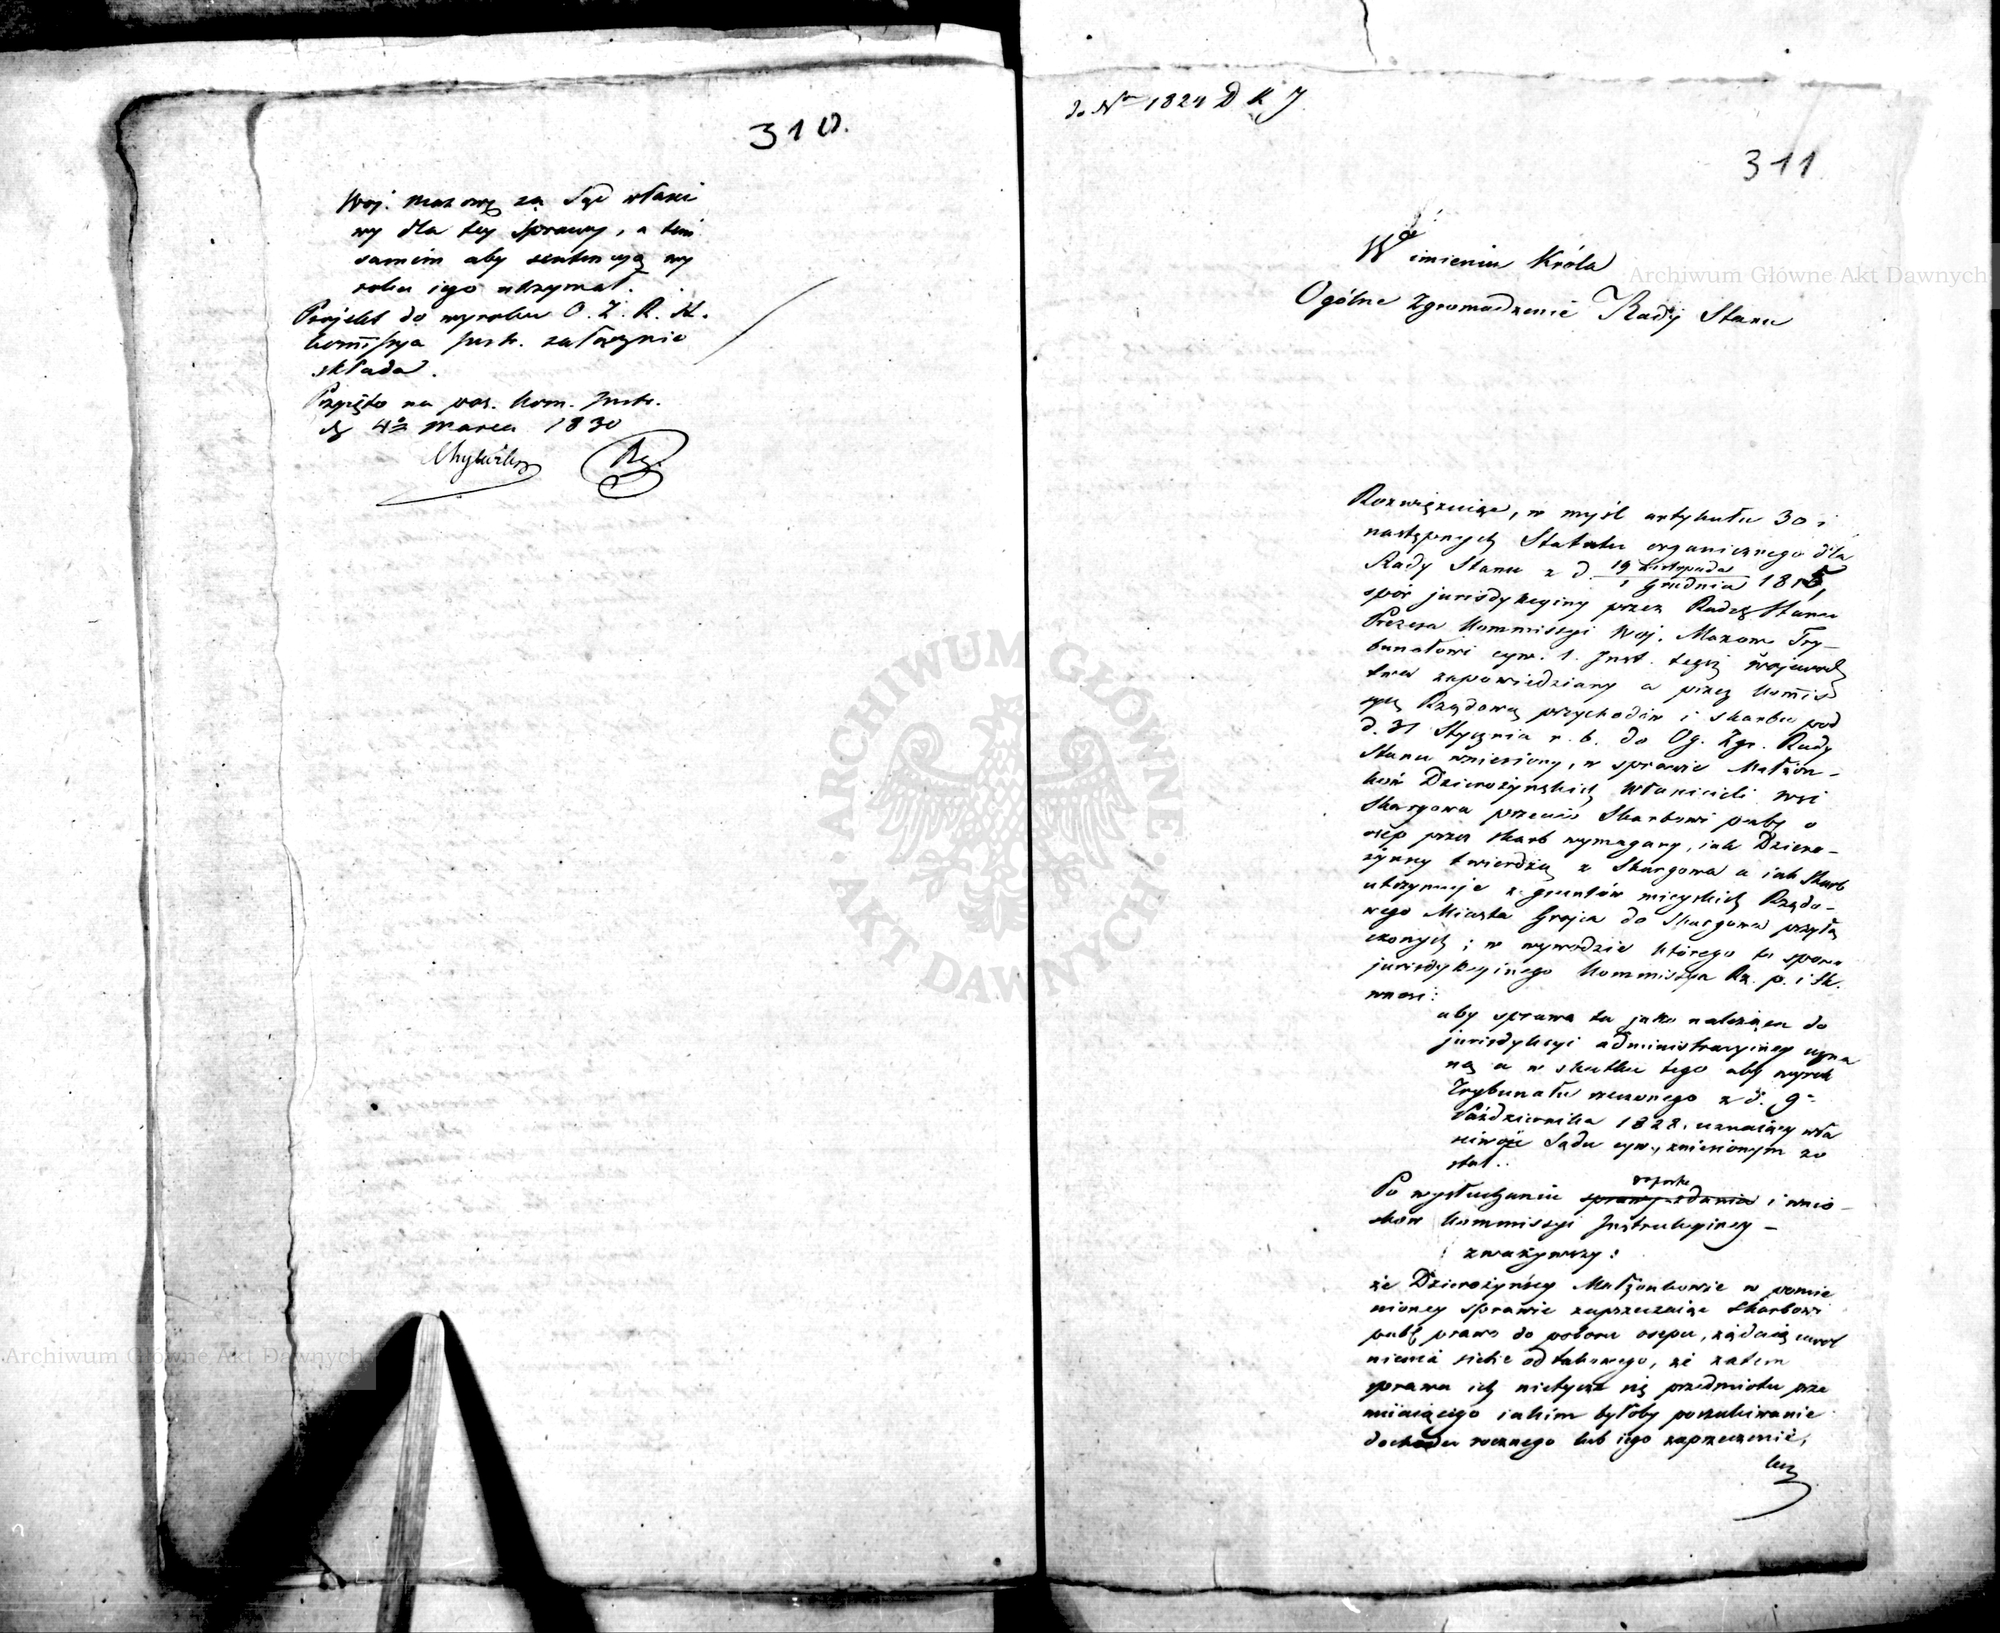 310.
Woj: Mazow: za Sąd właści
wy dla tey sprawy, a tem
samem aby sentencyą wy
roku iego utrzymał.
Projekt do wyroku O. Z. R. St.
Kommissya Instr. załącznie
składa.
Przyięto na pos. Kom. Instr.
d. 4go Marca 1830
do Nru 1824 D K J
311
W imieniu Króla
Ogólne Zgromadzenie Rady Stanu
Rozwięzuiąc, w myśl artykułu 30 i
następnych Statutu organicznego dla
Rady Stanu z d. 19 Listopada / 1 Grudnia 1815,
spór jurisdykcyiny przez Radzcę Stanu
Prezesa Kommissyi Woj. Mazow. Try-
bunałowi cyw. 1. Inst. tegoż Wojewódz
twa zapowiedziany a przez Kommis
syą Rządową przychodów i skarbu pod
d. 31 Stycznia r. b. do Og. Zgr. Rady
Stanu wniesiony, w sprawie Małżon-
ków Dzierożyńskich Właścicieli wsi
Skurgowa przeciw Skarbowi publ. o
osep przez skarb wymagany, iak Dziero-
żyńscy twierdzą z Skurgowa a iak Skarb
utrzymuje z gruntów mieyskich Rządo-
wego Miasta Grojca do Skurgowa przyłą
czonych; w wywodzie którego to sporu
jurisdykcyinego Kommissya Rz. p. i Sk.
wnosi:
aby sprawa ta jako należąca do
jurisdykcyi administracyiney uzna
ną a w skutku tego aby wyrok
Trybunału rzeczonego z d. 9o
Października 1828. uznaiący wła
ściwość Sądu cyw., zniesionym zo
stał.
Po wysłuchaniu sprawozdania raportu i wnio-
sków Kommissyi Instrukcyiney -
zważywszy:
że Dzierożyńscy Małżonkowie w pomie
nioney sprawie zaprzeczaiąc Skarbowi
publ. prawo do poboru osepu, żądaią uwol
nienia siebie od takowego, że zatem
sprawa ich nietycze się przedmiotu prze
miiaiącego iakim byłoby poszukiwanie
dochodu rocznego lub iego zaprzeczenie,
lecz
ARCHIWUM GŁÓWNE AKT DAWNYCH
Archiwum Główne Akt Dawnych
Archiwum Główne Akt Dawnych